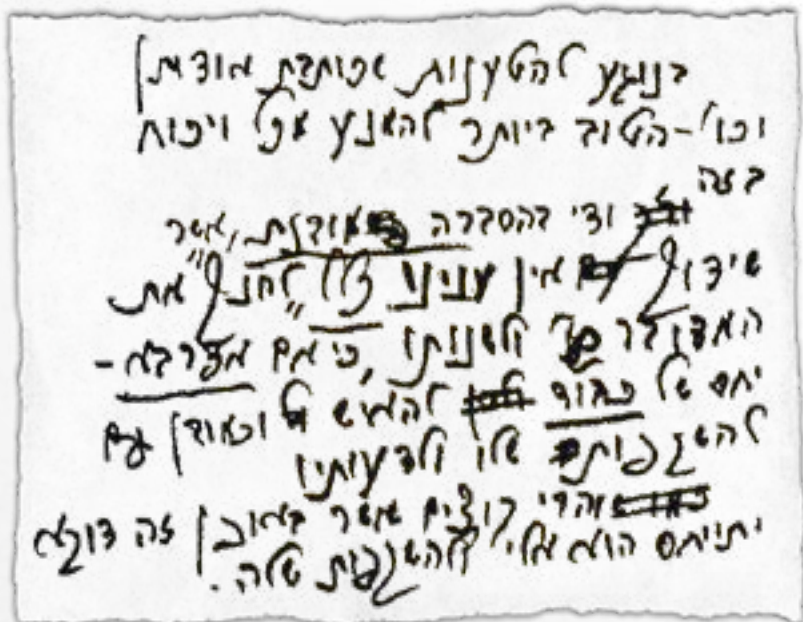 בנוגע להטענות שכותבת
וכו' - הטוב ביותר להמנע מכל ויכוח
בזה
ודי בהסברה אשר
שידוך אין ענינו כלל "לחנך" את
המדובר ולשנותו, כי אם אדרבא -
יחס של כבוד להאיש וכמובן גם
להשקפות שלו ולדעותיו
והרי רוצים אשר באופן זה דוקא
יתייחס הוא אלי' ולהשקפות שלה.